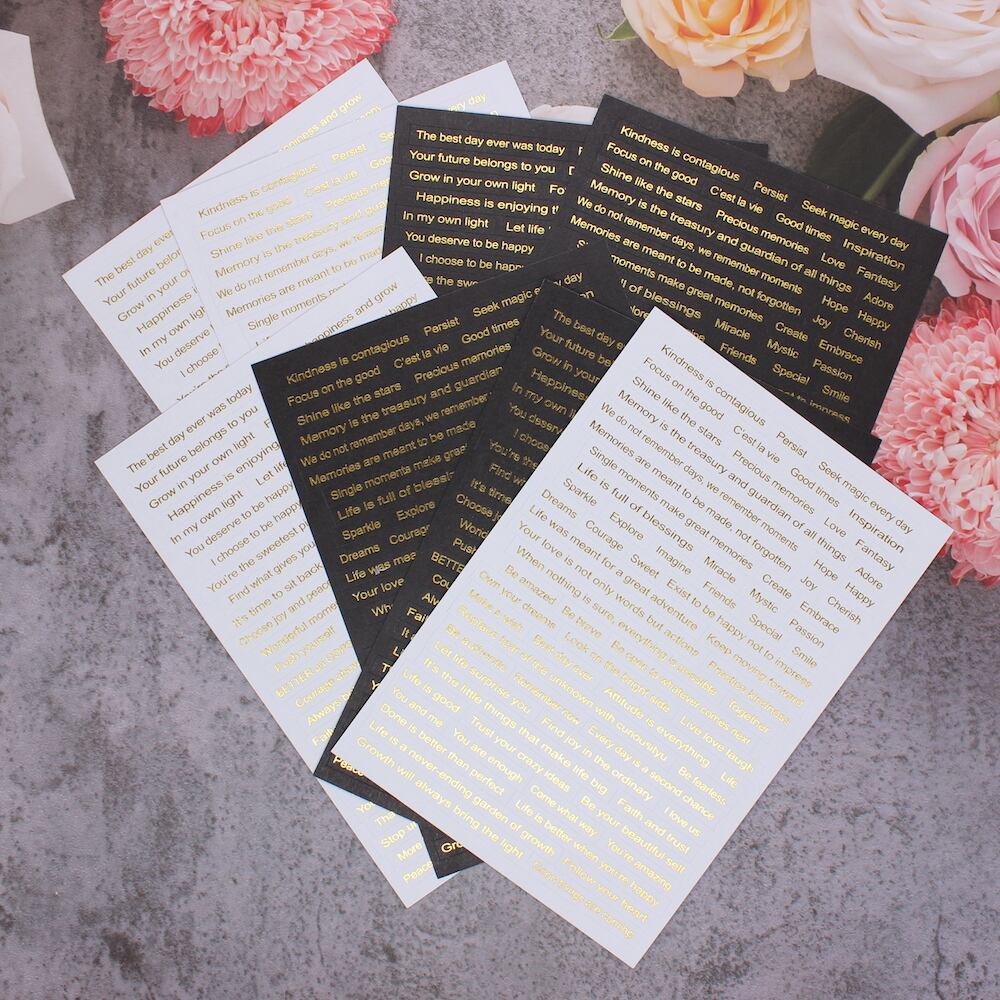 ppiness and grow
The best day ever
Your future belon
Grow in your ow
Happiness
In my own ligh
You deserve
I choose
every day
Kindness is contagious Persist
Focus on the good C'est la vie Good
Shine like the stars Precious
Memory is the treasury and
We do not remember days, we
Memories are meant to be
Single moments
The best day ever was today
Your future belongs to you
Grow in your own light
Happiness is enjoying
In my own light Let life
You deserve to be happy
I choose to be happy
Kindness is contagious Persist Seek magic every day
Focus on the good C'est la vie Good times Inspiration
Shine like the stars Precious memories Love Fantasy
Memory is the treasury and guardian of all things Adore
We do not remember days, we remember moments Hope Happy
Memories are meant to be made, not forgotten Joy Cherish
moments make great memories Create Embrace
ull of blessings Miracle Mystic Passion
Friends Special Smile
not to impress
happiness and grow
happy
The best day ever was today
Your future belongs to you
Grow in your own light
Happiness is enjoying
In my own light Let life
You deserve to be happy
I choose to be happy
You're the sweetest
Find what gives you
It's time to sit back
Choose joy and peace
Wonderful
Push yourself
BETTER an OOPS
Courage
Always
Stop
More
Peace
Kindness is contagious Persist Seek magic every day
Focus on the good C'est la vie Good times
Shine like the stars Precious memories
Memory is the treasury and guardian
We do not remember days, we remember
Memories are meant to be made
Single moments make great
Life is full of blessi
Sparkle Explore
Dreams Courage
Life was mea
Your love
Peace
The best day ev
Your future be
Grow in your
Happiness
In my own li
You deserv
I choose
You're the
Find wh
It's time
Choose j
World
Push
BETTE
Gro
Kindness is contagious Persist Seek magic every day
Focus on the good C'est la vie Good times Inspiration
Shine like the stars Precious memories Love Fantasy
Memory is the treasury and guardian of all things Adore
We do not remember days, we remember moments Hope Happy
Memories are meant to be made, not forgotten Joy Cherish
Single moments make great memories Create Embrace
Life is full of blessings Miracle Mystic Passion
Sparkle Explore Imagine Friends Special Smile
Dreams Courage Sweet Exist to be happy not to impress
Life was meant for a great adventure Keep moving forward
Your love is not only words but actions Practice kindness
When nothing is sure, everything is possible Together
Be amazed Be brave Be open to whatever comes next
Own your dreams Look on the bright side Live love laugh
Make a wish Best day ever Attitude is everything Life
Explore more of the unknown with curiousilyu Be fearless
Be audacious Remember now Every day is a second chance
Let life surprise you Find joy in the ordinary I love us
It's the little things that make life big Faith and trust
Life is good Trust your crazy ideas Be your beautiful self
You and me You are enough Come what way You're amazing
Done is better than perfect Life is better when you're happy
Life is a never-ending garden of growth Follow your heart
Growth will always bring the light Good things are coming